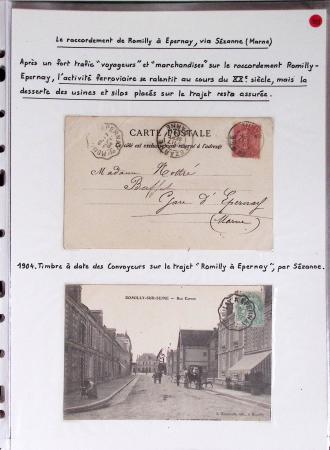 Le raccordement de Romilly à Epernay, via Sézanne (Marne)
Après un fort trafic "voyageurs" et "marchandises" sur le raccordement Romilly-
Epernay, l'activité ferroviaire se ralentit au cours du XXe siècle, mais la
desserte des usines et silos placés sur le trajet reste assurée.
CARTE POSTALE
Ce côté est exclusivement réservé à l'adresse
Madame
Buffet
Gare d'Epernay
(Marne)
1904. Timbre à date des Convoyeurs sur le trajet "Romilly à Epernay", par Sézanne.
ROMILLY-SUR-SEINE - Rue Carnot